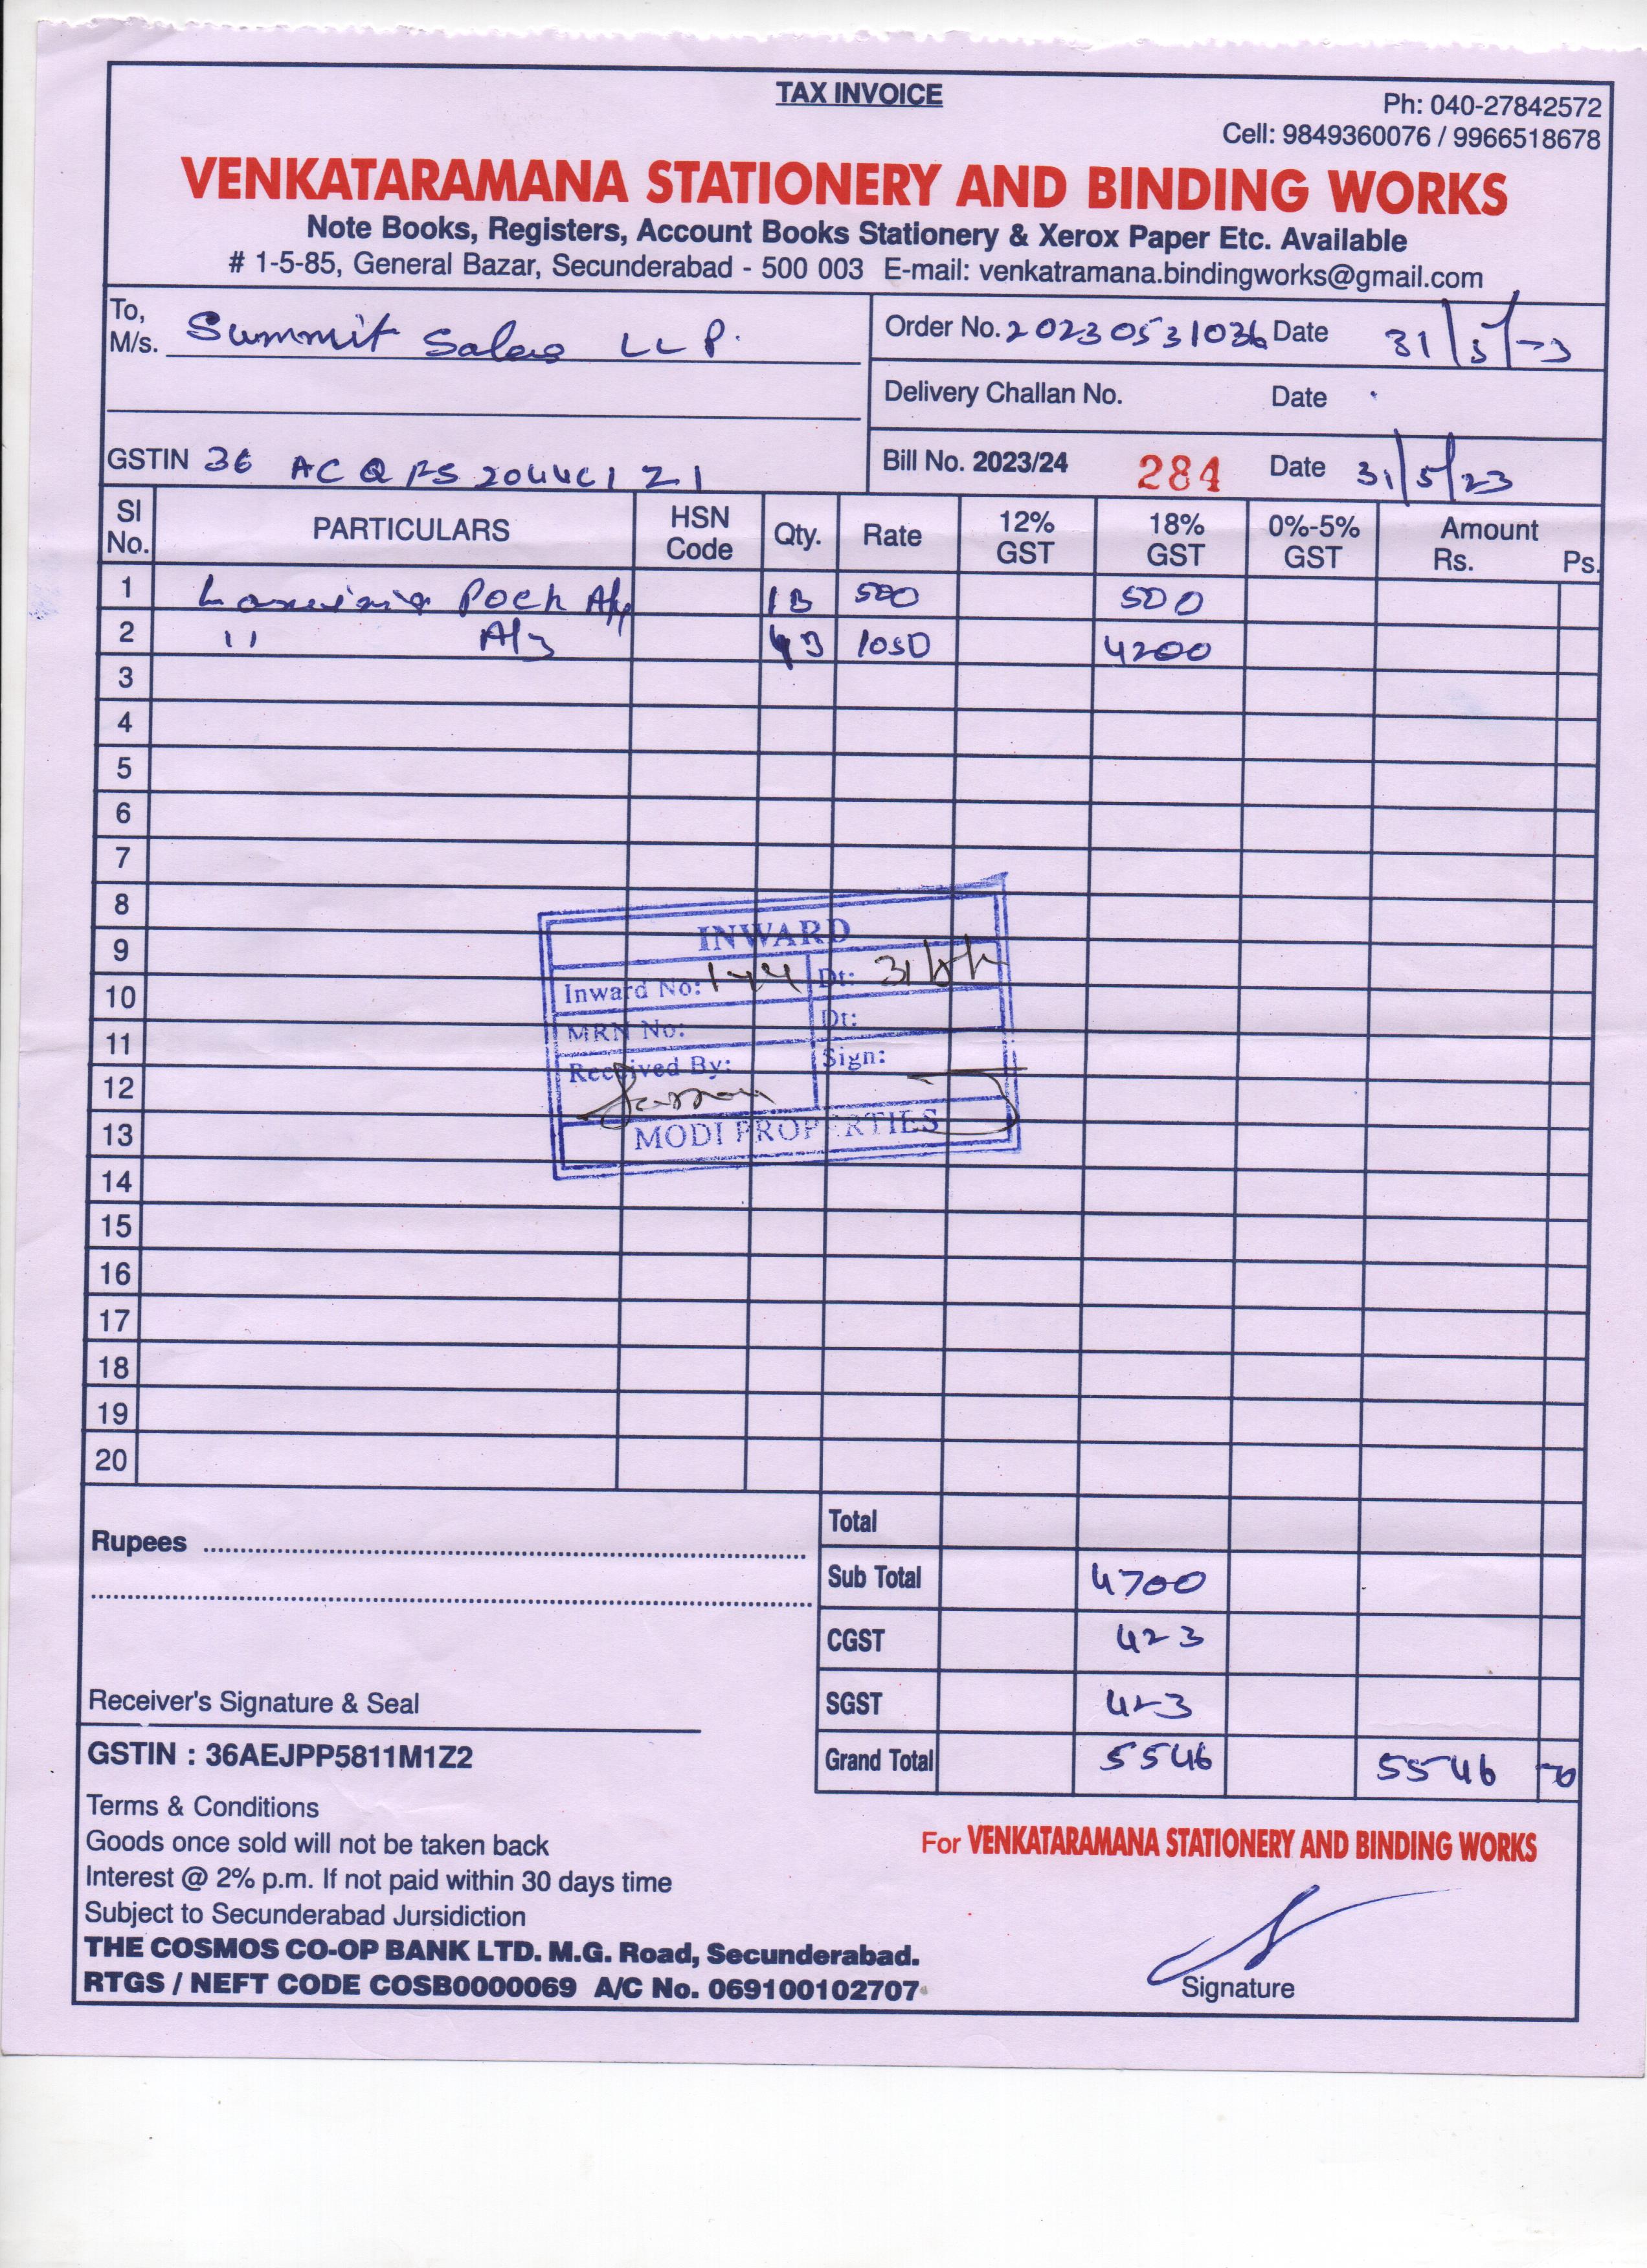 TAX INVOICE
Ph: 040-27842572
Cell: 9849360076 / 9966518678
VENKATARAMANA STATIONERY AND BINDING WORKS
Note Books, Registers, Account Books Stationery & Xerox Paper Etc. Available
# 1-5-85, General Bazar, Secunderabad - 500 003 E-mail: venkatramana.bindingworks@gmail.com
To,
M/s. Summit Sales LLP.
Order No. 20230531036 Date 31/5/23
Delivery Challan No. Date
GSTIN 36
Bill No. 2023/24 284 Date 31/5/23
Sl No. PARTICULARS HSN Code Qty. Rate 12% GST 18% GST 0%-5% GST Amount Rs. Ps.
1 Poch 1B 500 500
2 " A/3 4B 1050 4200
3
4
5
6
7
8
9
10
11
12
13
14
15
16
17
18
19
20
INWARD
Inward No: Dt:
MRN No: Dt:
Received By: Sign:
MODI PROPERTIES
Total
Rupees
Sub Total 4700
CGST 423
SGST 423
Grand Total 5546 5546
Receiver's Signature & Seal
GSTIN : 36AEJPP5811M1Z2
Terms & Conditions
Goods once sold will not be taken back
Interest @ 2% p.m. If not paid within 30 days time
Subject to Secunderabad Jursidiction
THE COSMOS CO-OP BANK LTD. M.G. Road, Secunderabad.
RTGS / NEFT CODE COSB0000069 A/C No. 069100102707
For VENKATARAMANA STATIONERY AND BINDING WORKS
Signature